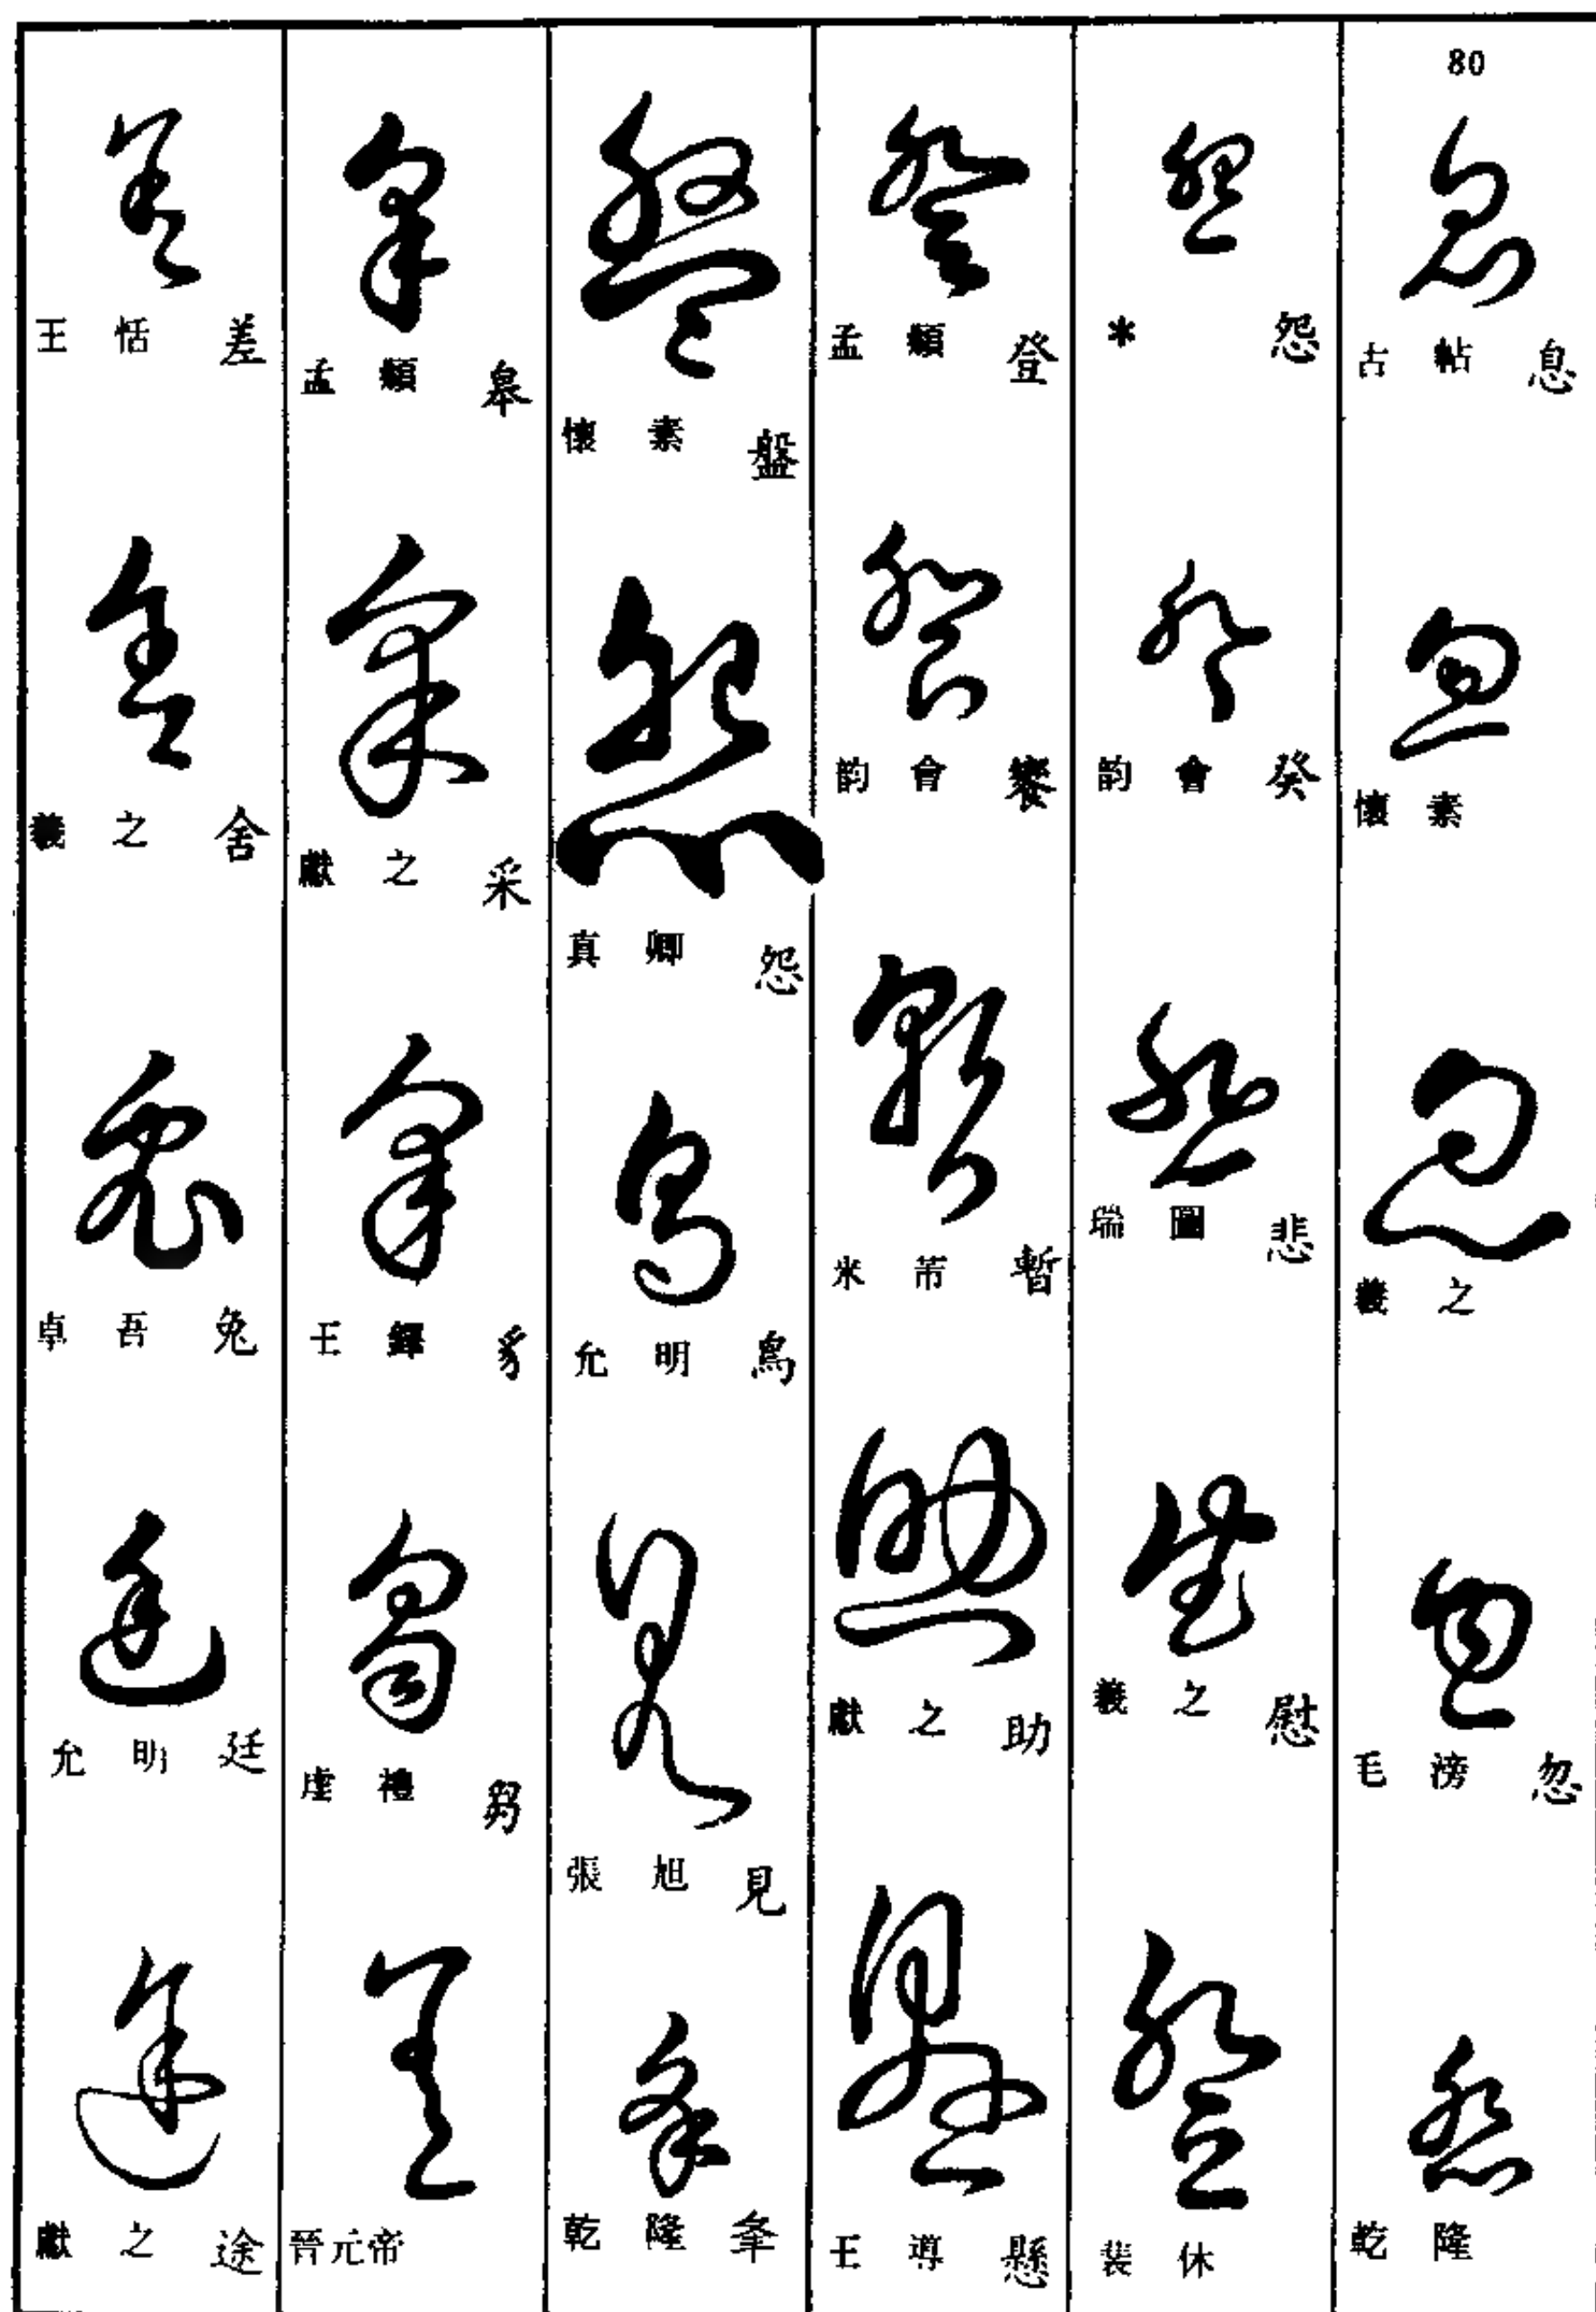 80
古帖 息
懷素
羲之
毛滂 忽
乾隆
* 怨
韵會 癸
瑞圖 悲
羲之 慰
裴休
孟頫 登
韵會 饗
米芾 暫
獻之 助
王導 懸
懷素 盤
真卿 怨
允明 鳥
張旭 見
乾隆 夆
孟頫 皋
獻之 采
王鐸 豸
虔禮 芻
晉元帝
王恬 差
羲之 舍
卓吾 兔
允明 廷
獻之 途